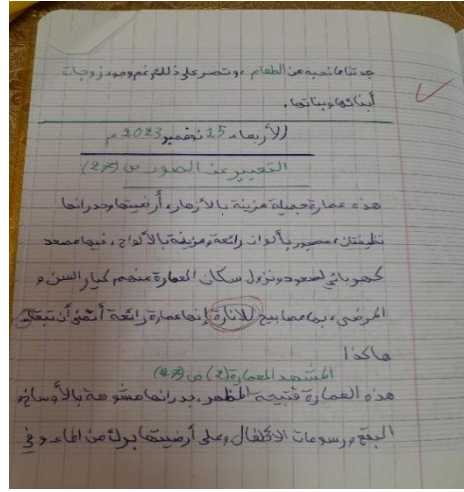 جدتنا ما نحبه من الطعام ، وتصر على ذلك رغم وجود زوجات
أبنائها وبناتها .
الأربعاء 15 نوفمبر 2023 م
التعبير عن الصور ص (27)
هذه عمارة جميلة مزينة بالأزهار، أرضيتها وجدرانها
نظيفتان، بألوان رائعة ومزينة بالألواح، فيها مصعد
كهربائي لصعود ونزول سكان العمارة منهم كبار السن و
المرضى، بها مصابيح للإنارة إنها عمارة رائعة أتمنى أن تبقى
هاكذا
المشهد العمارة (2) ص (27)
هذه العمارة قبيحة المظهر، جدرانها مشوهة بالأوساخ و
البقع ورسومات الأطفال وعلى أرضيتها برك من الماء و في